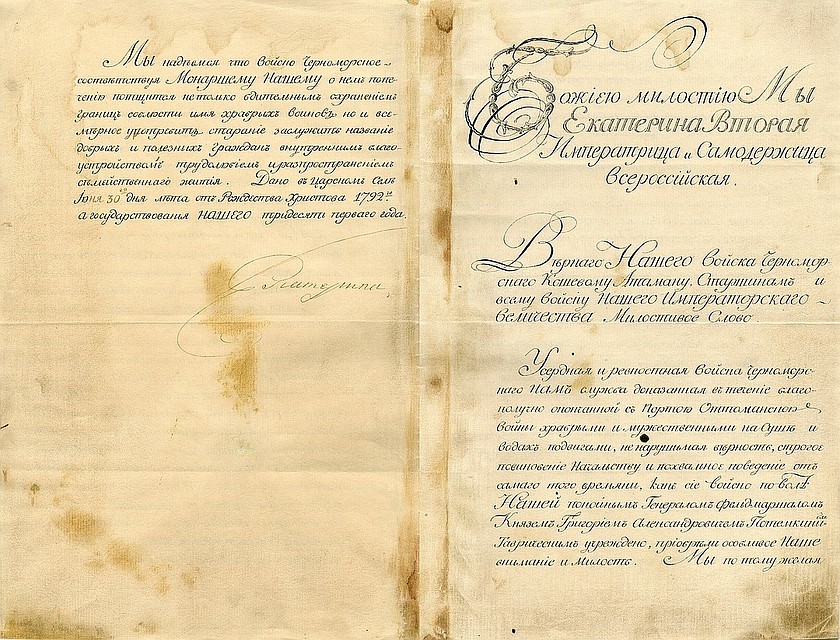 Мы надѣемся что Войско Черноморское
соотвѣтствуя Монаршему Нашему о немъ попе-
ченію потщится не только бдительнымъ сохраненіемъ
границъ соблюсти имя храбрыхъ воиновъ но и все-
мѣрное употребитъ стараніе заслужить названіе
добрыхъ и полезныхъ гражданъ внутреннимъ благо-
устройствомъ трудолюбіемъ и распространеніемъ
семѣйственнаго житія. Дано въ Царскомъ Селѣ
Іюня 30 дня лѣта отъ Рождества Христова 1792го
а государствованія НАШЕГО тридесяти перваго года.
Екатерина
Божіею милостію Мы
Екатерина Вторая
Императрица и Самодержица
Всероссійская.
Вѣрнаго Нашего Войска Черномор
скаго Кошевому Атаману, Старшинамъ и
всему Войску Нашего Императорскаго
Величества Милостивое Слово.
Усердная и ревностная Войска Черномор-
наго Намъ служба доказанная въ теченіе благо-
получно оконченной съ Портою Оттоманскою
войны храбрыми и мужественными на Сушѣ и
водахъ подвигами, не нарушимая вѣрность, строгое
повиновеніе Начальству и похвальное поведеніе отъ
самаго того времяни, какъ сіе войско по волѣ
Нашей покойнымъ Генераломъ фельдмаршаломъ
Княземъ Григоріемъ Александровичемъ Потемкинымъ
Таврическимъ учреждено, пріобрѣли особливое Наше
вниманіе и милость. Мы по тому желая